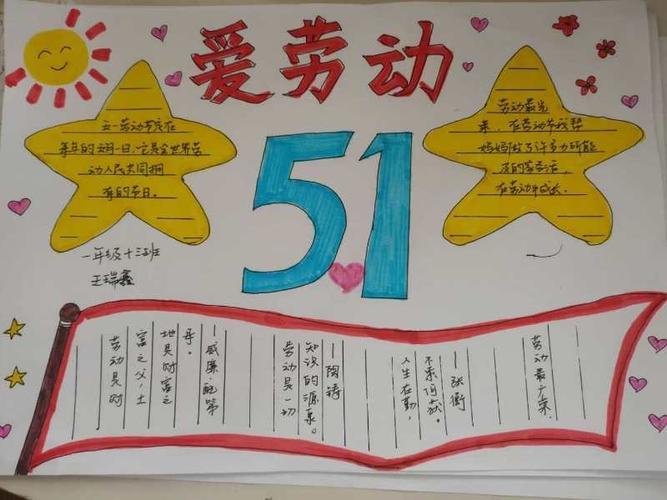 爱劳动
51
五一劳动节定在
每年的五月一日.它是全世界劳
动人民共同拥
有的节日.
劳动最光
荣,在劳动节我帮
妈妈做了许多力所能
及的家务活,
在劳动中成长.
一年级十三班
王瑞鑫
劳动是财
富之父,土
地是财富之
母。
—威廉·配第
劳动是一切
知识的源泉。
—陶铸
人生在勤,
不索何获.
—张衡
劳动最光荣.